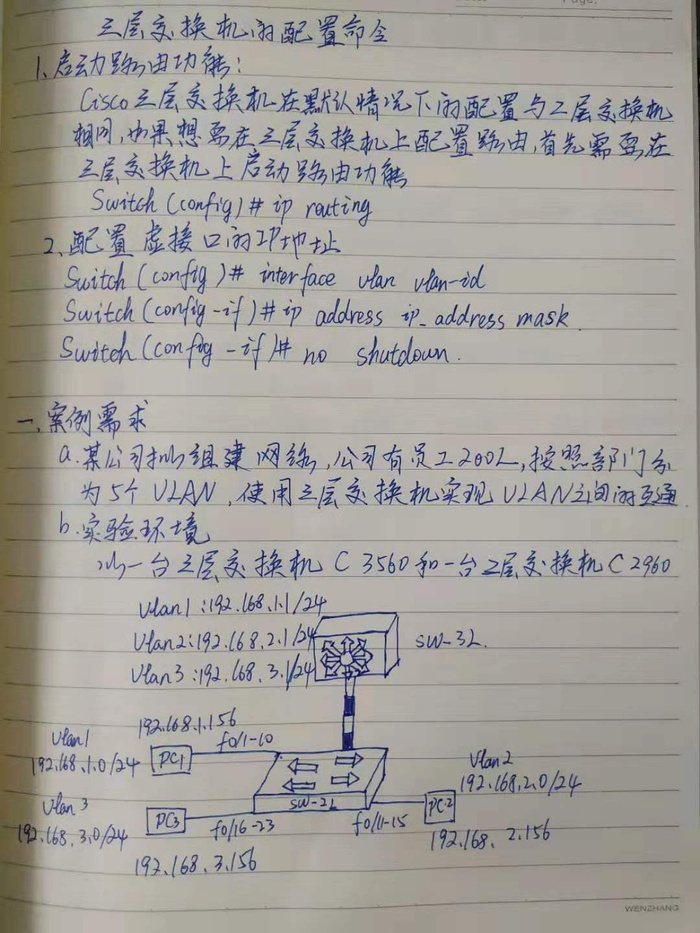 三层交换机的配置命令
1、启动路由功能:
Cisco三层交换机在默认情况下的配置与二层交换机
相同,如果想要在三层交换机上配置路由,首先需要在
三层交换机上启动路由功能
Switch (config)# ip routing
2、配置虚接口的IP地址
Switch (config)# interface vlan vlan-id
Switch (config-if)# ip address ip_address mask
Switch (config-if)# no shutdown.
一、案例需求
a.某公司拟组建网络,公司有员工200人,按照部门分
为5个VLAN,使用三层交换机实现VLAN之间的互通
b.实验环境
以一台三层交换机C3560和一台二层交换机C2960
Vlan1:192.168.1.1/24
Vlan2:192.168.2.1/24
Vlan3:192.168.3.1/24
SW-3L.
192.168.1.156
Vlan1
f0/1-10
192.168.1.0/24
PC1
Vlan2
192.168.2.0/24
SW-2L
Vlan 3
PC2
PC3
192.168.3.0/24
f0/16-23
f0/11-15
192.168.2.156
192.168.3.156
WENZHANG